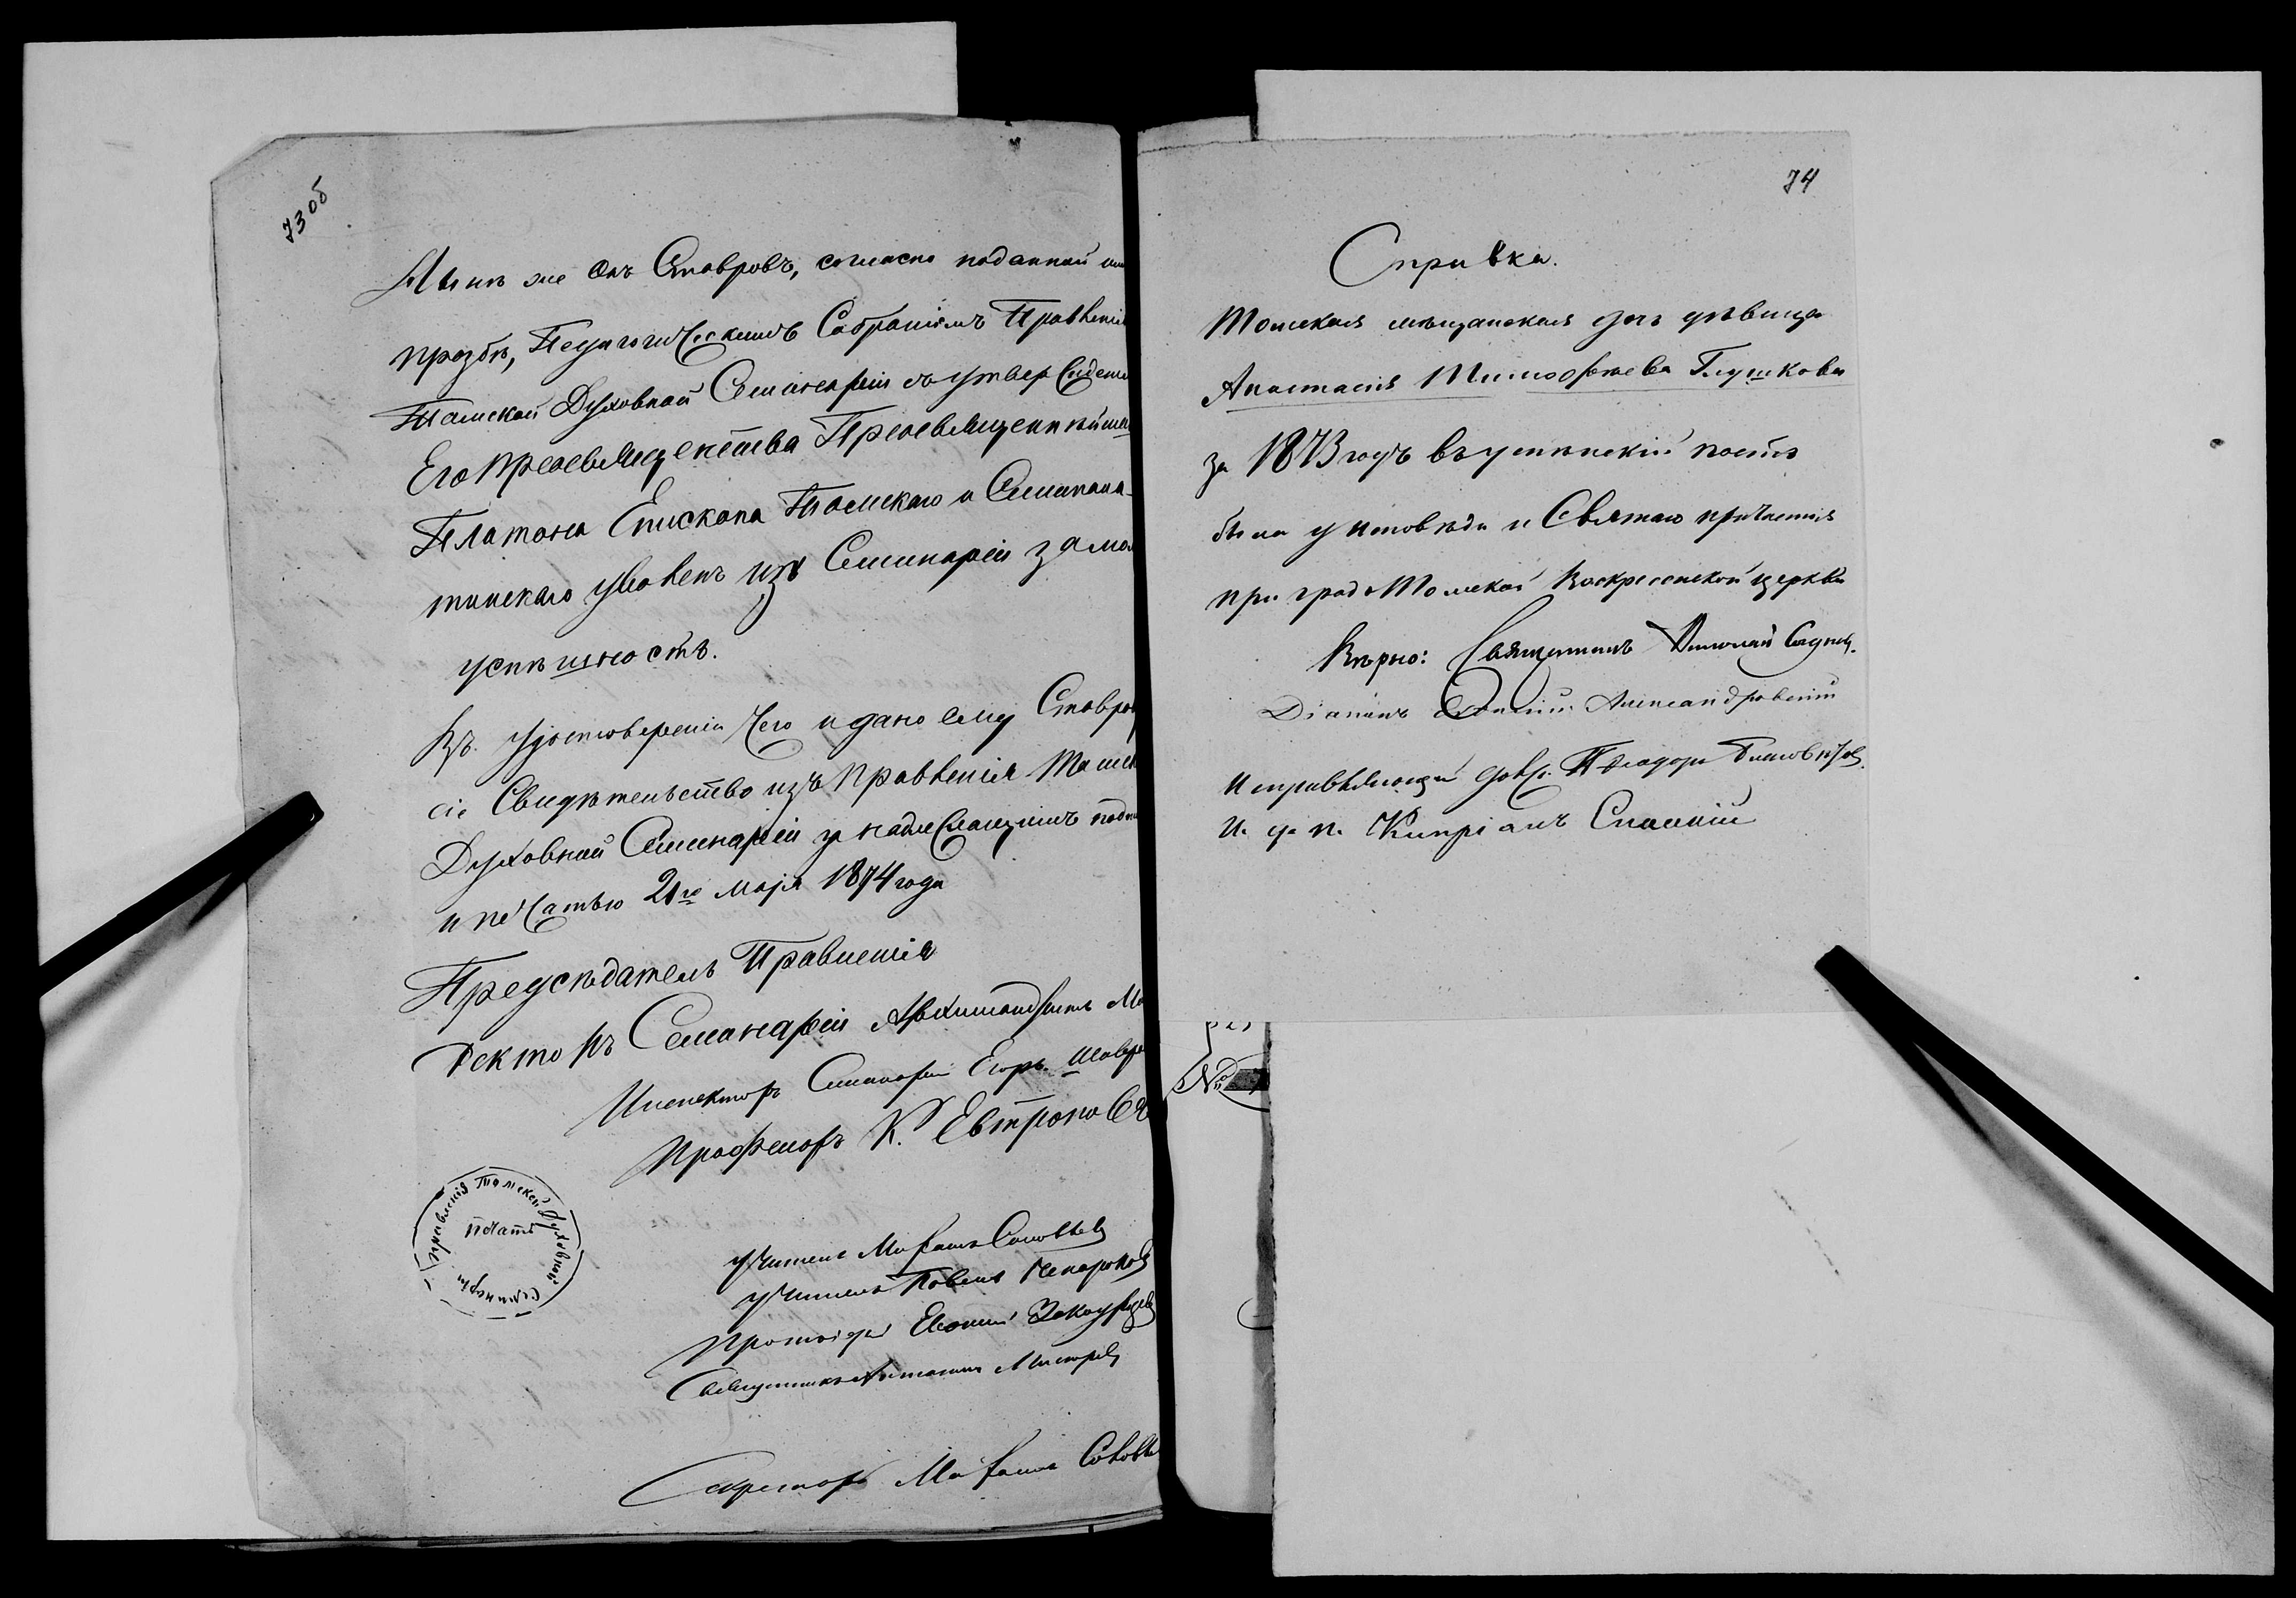 73 об
Нынѣ же онъ Ставровъ, согласно поданной им
прозбѣ, Педагогическимъ Собраніемъ Правленія
Томской Духовной Семинаріи съ утвержденія
Его Преосвященства Преосвященнѣйша
Платона Епископа Томскаго и Семипала-
тинскаго уволенъ изъ Семинаріи за мало
успѣшность.
Въ удостовѣреніи чего и дано ему Ставро
сіе Свидѣтельство изъ Правленія Томск
Духовной Семинаріи за надлежащимъ подп
и печатью 21го мая 1874 года
Предсѣдатель Правленія
Ректоръ Семинаріи Архимандритъ Мо
Инспекторъ Семинаріи Егоръ Шавро
Профессоръ К. Евтроповъ
Правленія Томской Духовной Семинаріи
Печать
Учитель Михаилъ Соловьевъ
Учитель Павелъ
Протоіерей Евфимій Закоурцевъ
Священникъ Антоній Мисюревъ
Секретарь Михаилъ Соловье
74
Справка.
Томская мѣщанская дочь дѣвица
Анастасія Тимофѣева Глушкова
за 1873 годъ въ успѣнскій постъ
была у исповѣди и Святаго причастія
при градо Томской Воскресенской церкви
Вѣрно: Священникъ Николай
Діаконъ Александровскій
Исправляющій долж. Псаломщ.
И. д. п. Кипріанъ Спасскій
№